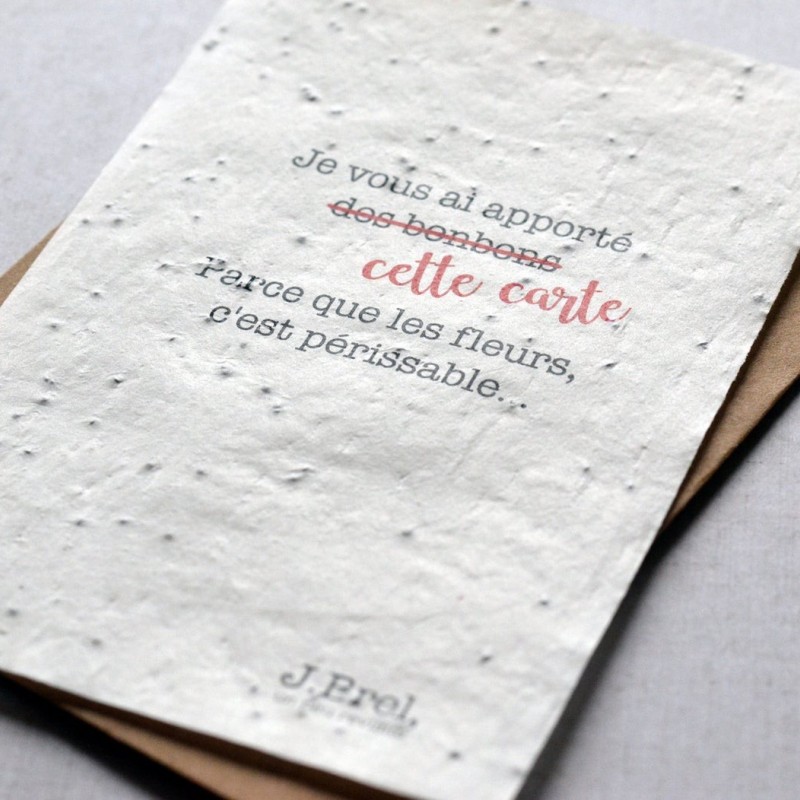 Je vous ai apporté
des bonbons
cette carte
Parce que les fleurs,
c'est périssable...
J.Brel,